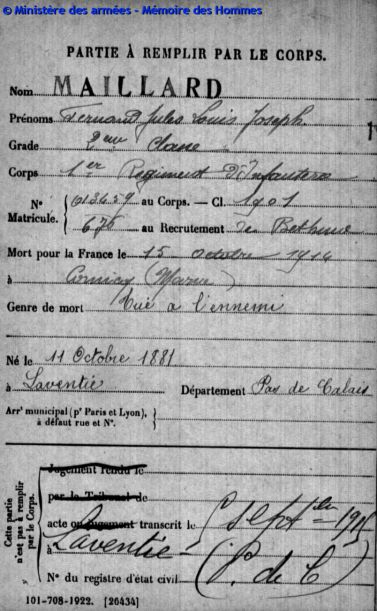 © Ministère des armées - Mémoire des Hommes
PARTIE À REMPLIR PAR LE CORPS.
Nom MAILLARD
Prénoms Fernand Jules Louis Joseph.
Grade 2eme Classe
Corps 1er Regiment D'Infanterie
N° Matricule. 013459 au Corps. — Cl. 1901
675 au Recrutement de Bethune
Mort pour la France le 15 Octobre 1914
à Cormicy (Marne)
Genre de mort Tué a l'ennemi
Né le 11 Octobre 1881
à Laventie Département Pas de Calais
Arrt municipal (pr Paris et Lyon),
à défaut rue et N°.
Cette partie n'est pas à remplir par le Corps.
Jugement rendu le
par le Tribunal de
acte ou jugement transcrit le Septbre 1915
à Laventie (P. de C)
N° du registre d'état civil
101-708-1922. [26434]